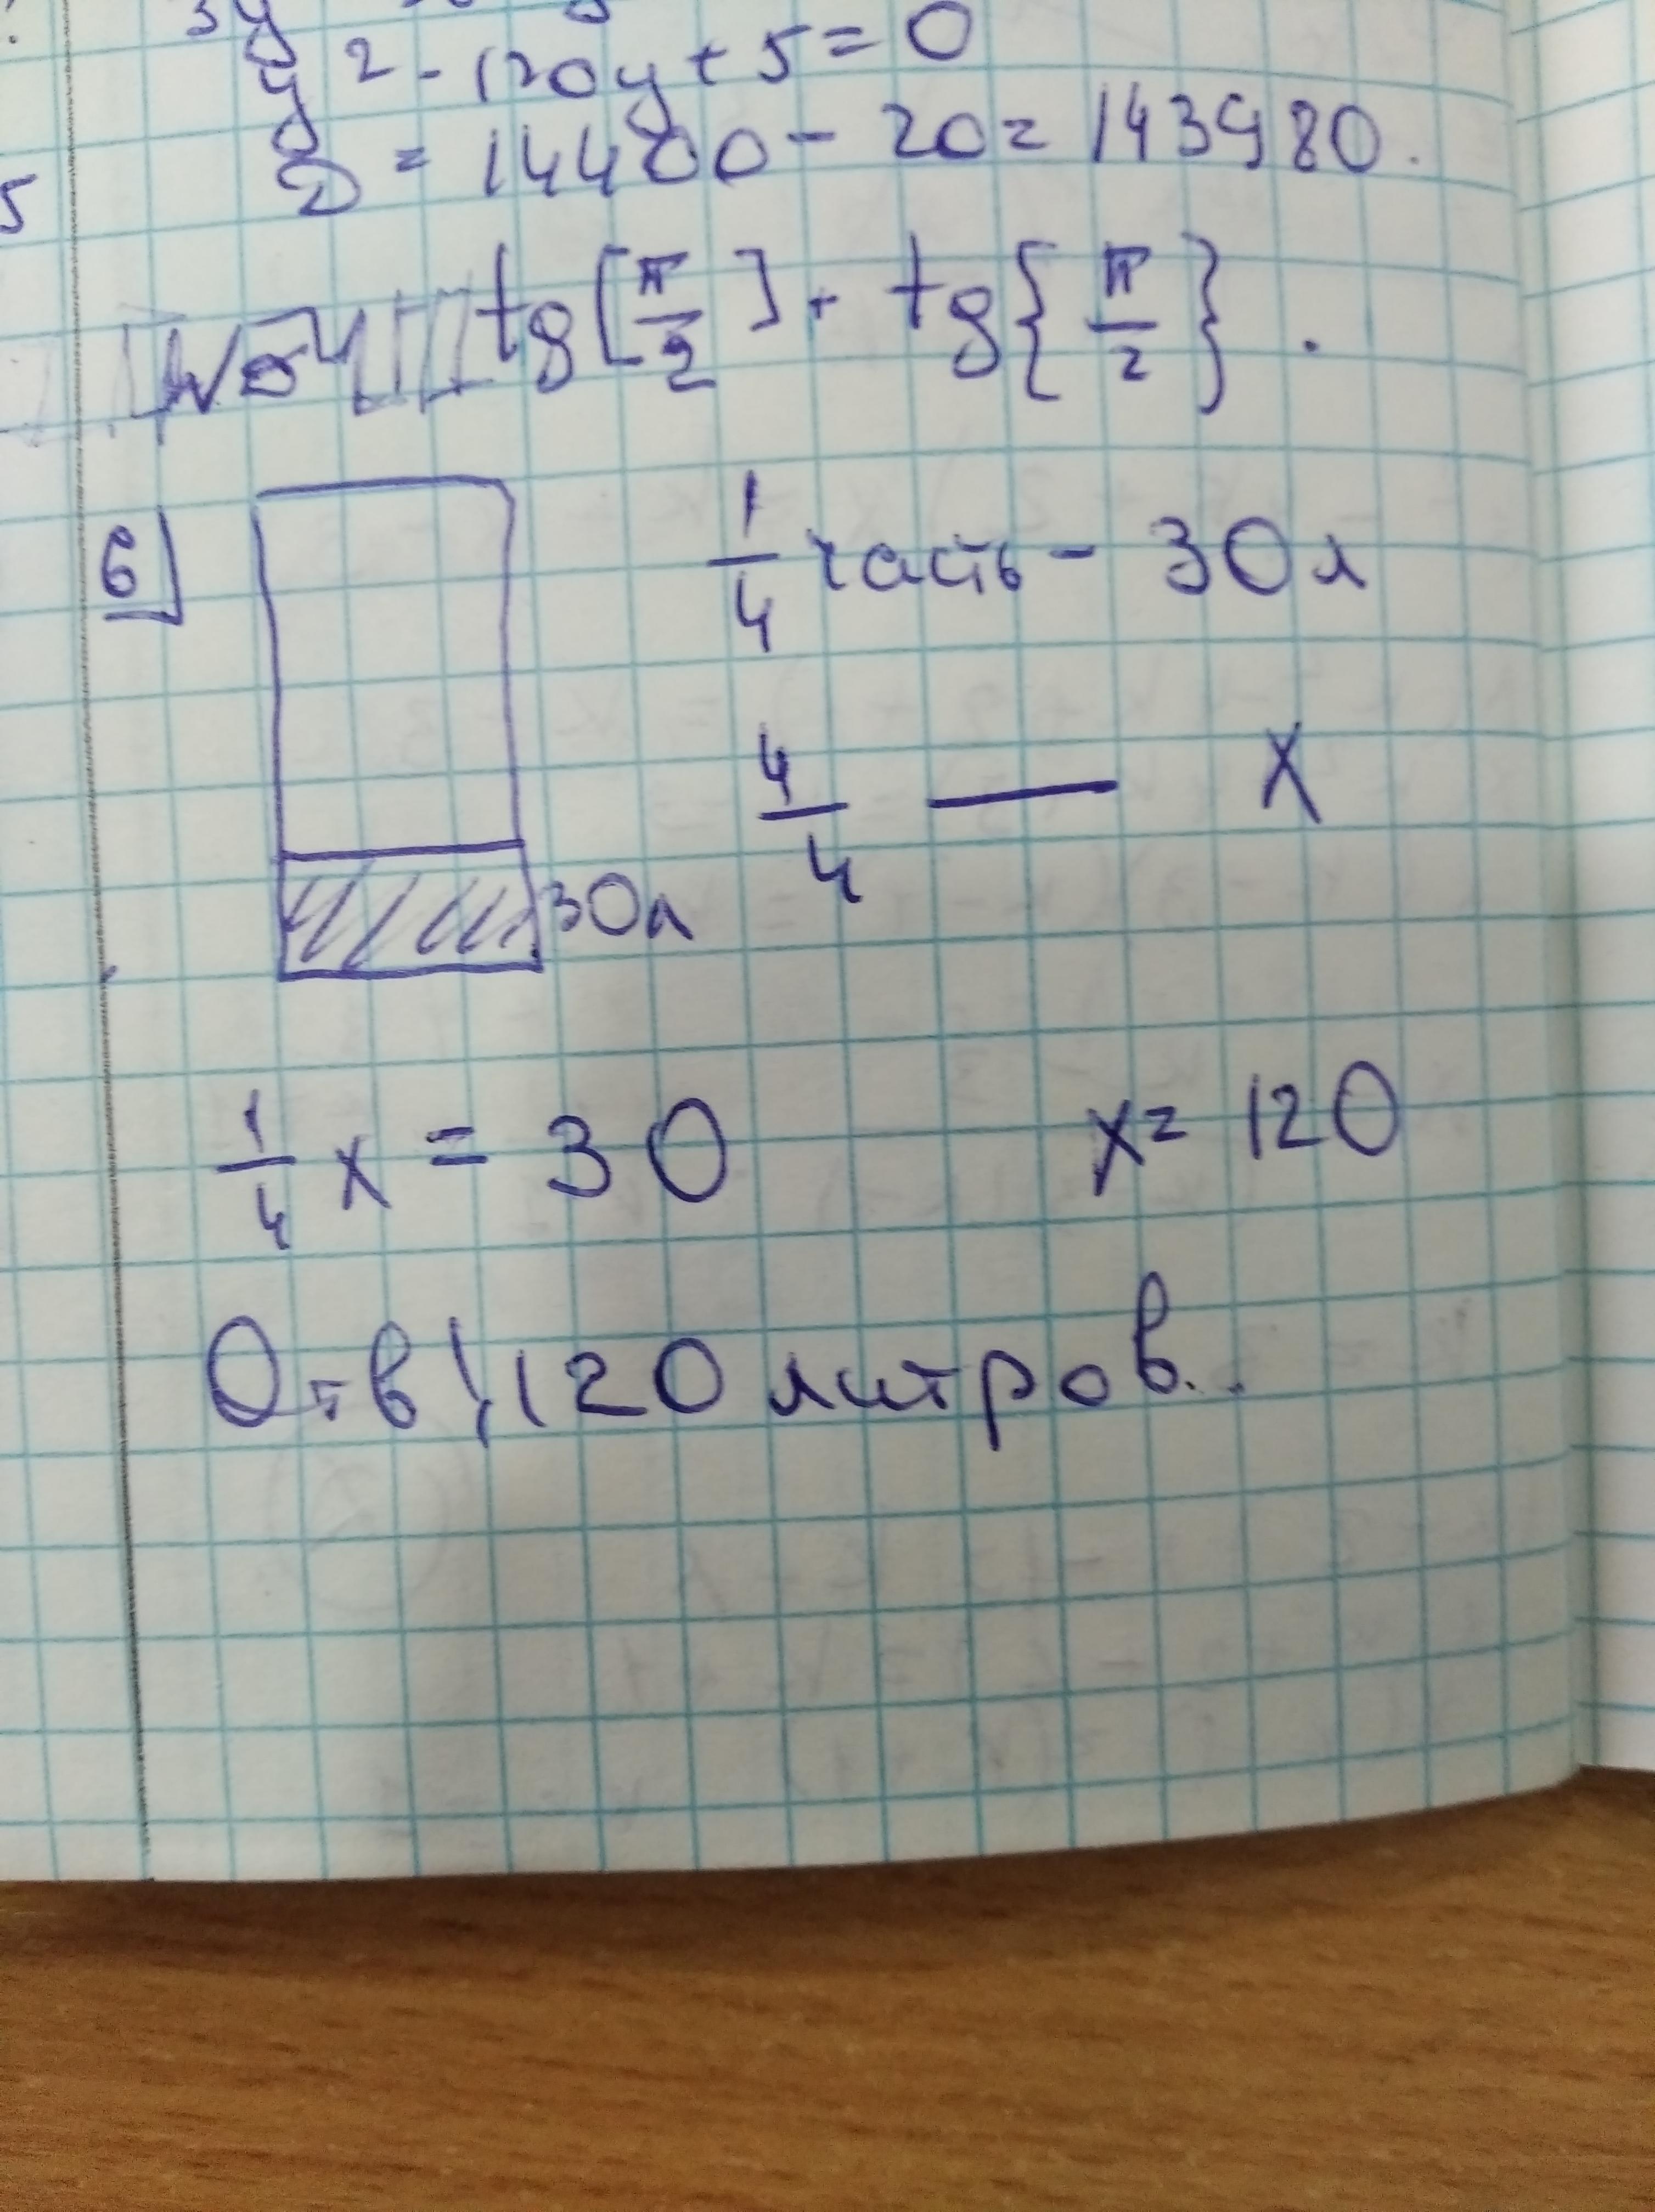 y² - 120y + 5 = 0
5
D = 14400 - 20 = 143980.
tg[π/2] + tg{π/2}.
6] 1/4 часть - 30 л
4/4 — x
30л
1/4 x = 30 x = 120
Отв: 120 литров.